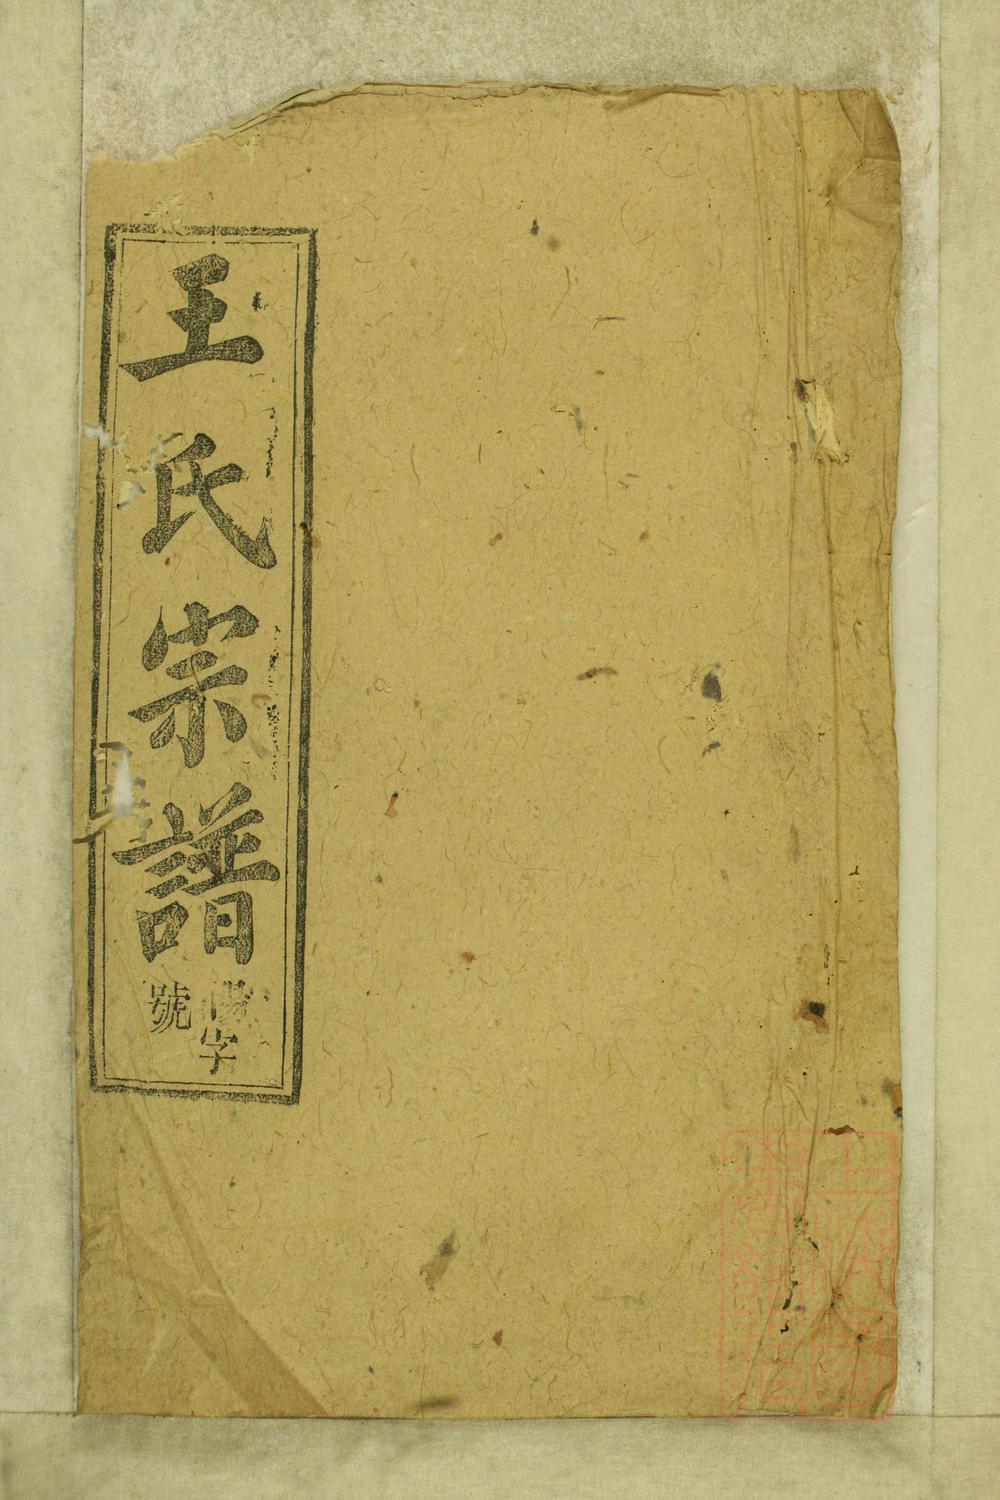 王氏宗譜
字
號